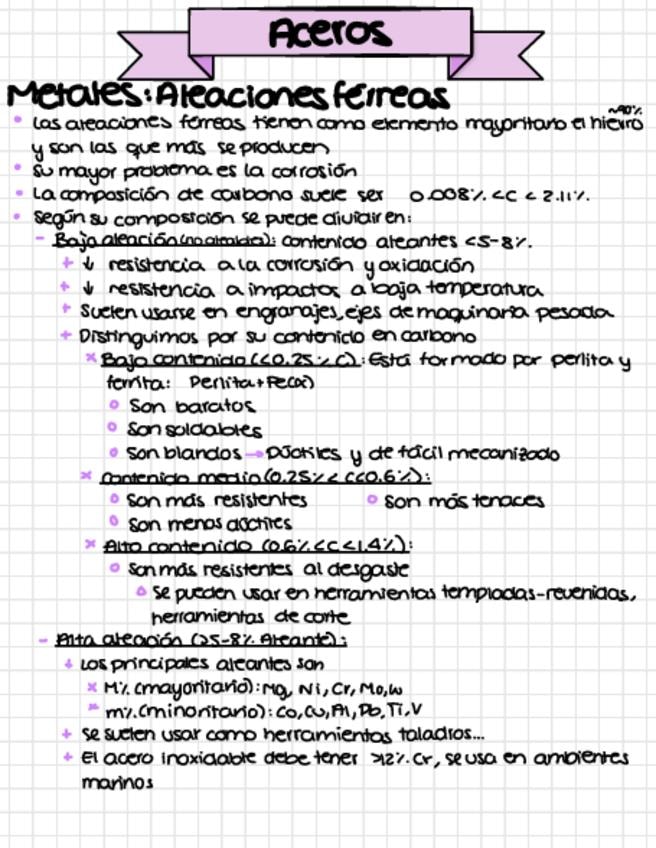 Aceros
Metales: Aleaciones férreas
~90%
• Las aleaciones férreas tienen como elemento mayoritario el hierro
y son las que más se producen
• su mayor problema es la corrosión
• La composición de carbono suele ser 0.008% <C < 2.11%.
• según su composición se puede dividir en:
- Baja aleación (no aleados): contenido aleantes <5-8%.
+ ↓ resistencia a la corrosión y oxidación
+ ↓ resistencia a impactos a baja temperatura
+ Suelen usarse en engranajes, ejes de maquinaria pesada
+ Distinguimos por su contenido en carbono
× Bajo contenido (<0.25% C): Está formado por perlita y
ferrita: Perlita+Fe(α)
○ Son baratos
○ Son soldables
○ Son blandos → Dúctiles y de fácil mecanizado
× Contenido medio (0.25%< C<0.6%):
○ Son más resistentes ○ Son más tenaces
○ Son menos dúctiles
× Alto contenido (0.6%<C<1.4%):
○ Son más resistentes al desgaste
△ Se pueden usar en herramientas templadas-revenidas,
herramientas de corte
- Alta aleación (>5-8% Aleante):
+ Los principales aleantes son
× M% (mayoritario): Mg, Ni, Cr, Mo, W
× m% (minoritario): Co, Cu, Al, Pb, Ti, V
+ Se suelen usar como herramientas taladros...
+ El acero inoxidable debe tener >12% Cr, se usa en ambientes
marinos